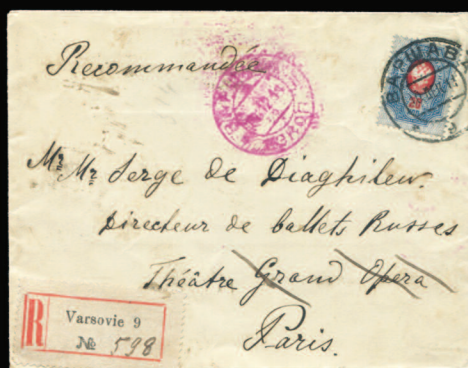 Recommandée
ВАРШАВА
20
Mr. Mr Serge de Diaghilew.
Directeur de ballets Russes
Théâtre Grand Opera
Paris.
R
Varsovie 9
№ 598